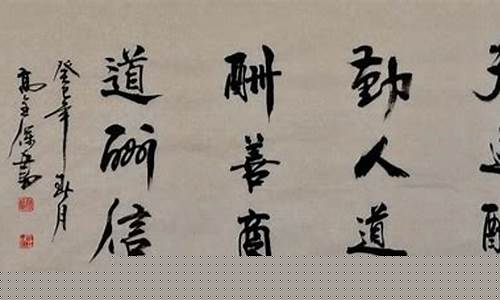 天道酬
勤人道
酬善商
道酬信
癸巳年秋月